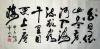 白日依
山盡黃
河入海
流欲窮
千里目
更上一
層樓